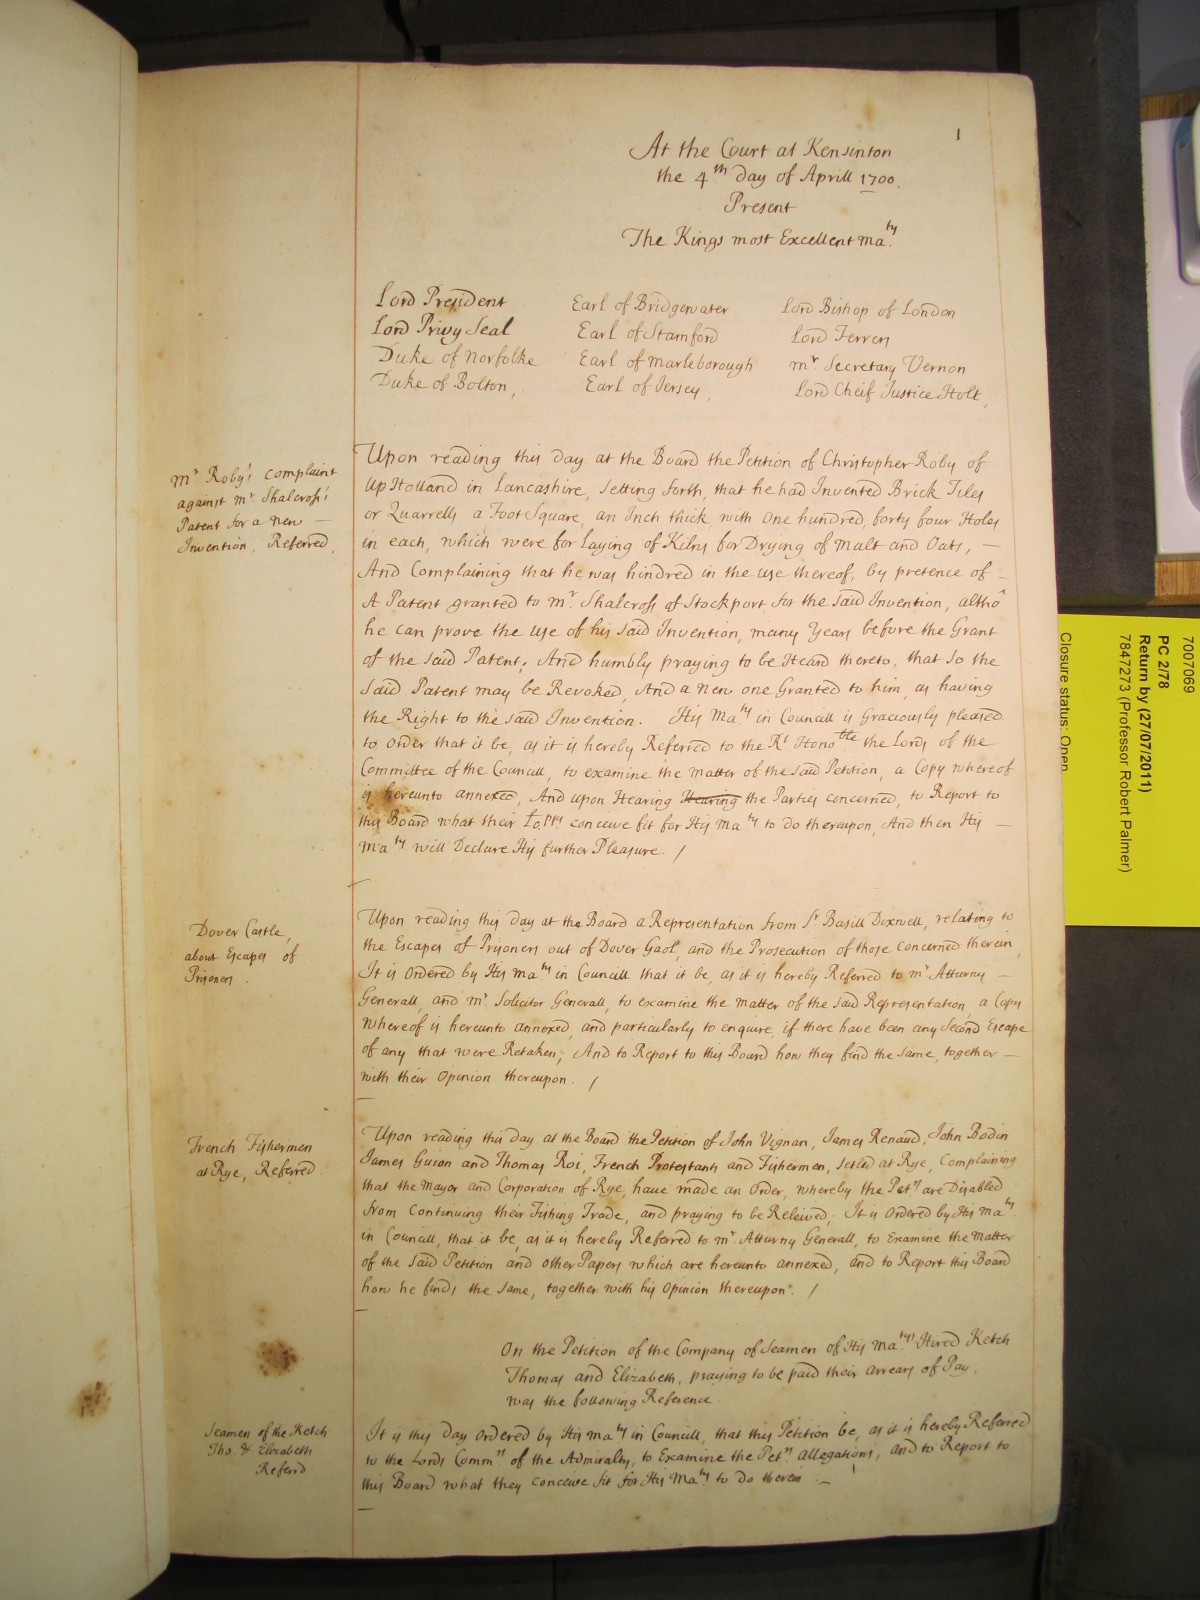 1
At the Court at Kensinton
the 4th day of Aprill 1700.
Present
The Kings most Excellent Maty.
Lord President
Lord Privy Seal
Duke of Norfolke
Duke of Bolton,
Earl of Bridgewater
Earl of Stamford
Earl of Marleborough
Earl of Jersey,
Lord Bishop of London
Lord Ferrers
Mr Secretary Vernon
Lord Cheif Justice Holt,
Mr Roby's Complaint
against Mr Shalcross's
Patent for a New —
Invention, Referred,
Upon reading this day at the Board the Petition of Christopher Roby of
Up Holland in Lancashire, setting forth, that he had Invented Brick Tiles
or Quarrells a Foot Square, an Inch thick with One hundred, forty four Holes
in each, which were for Laying of Kilns for Drying of Malt and Oats, —
And Complaining that he was hindred in the use thereof, by pretence of —
A Patent granted to Mr. Shalcross of Stockport, for the said Invention, altho
he can prove the use of his said Invention, many Years before the Grant
of the said Patent; And humbly praying to be Heard thereto, that so the
said Patent may be Revoked, And a new one Granted to him, as having
the Right to the said Invention. His Maty in Councill is Graciously pleased
to Order that it be, as it is hereby Referred to the Rt Honoble the Lords of the
Committee of the Councill, to examine the Matter of the said Petition, a Copy whereof
is hereunto annexed, And upon Hearing Hearing the Parties concerned, to Report to
this Board what their Lopps. conceive fit for His Maty to do thereupon, And then His —
Maty will Declare His further Pleasure. /
Dover Castle,
about Escapes of
Prisoners.
Upon reading this day at the Board a Representation from Sr Basill Dixwell, relating to
the Escapes of Prisoners out of Dover Gaol, and the Prosecution of those concerned therein,
It is Ordered by His Maty in Councill that it be, as it is hereby Referred to Mr Atturny —
Generall, and Mr. Solicitor Generall, to examine the Matter of the said Representation, a Copy
whereof is hereunto annexed, and particularly to enquire, if there have been any Second Escape
of any that were Retaken; And to Report to this Board how they find the same, together —
with their Opinion thereupon. /
French Fishermen
at Rye, Referred.
Upon reading this day at the Board the Petition of John Vignan, James Renaud, John Bodin
James Guion and Thomas Roi, French Protestants and Fishermen, setled at Rye, Complaining
that the Mayor and Corporation of Rye, have made an Order, whereby the Petrs are Disabled
from Continuing their Fishing Trade, and praying to be Releived; It is Ordered by His Maty
in Councill, that it be, as it is hereby Referred to Mr. Atturny Generall, to Examine the Matter
of the said Petition and other Papers which are hereunto annexed, and to Report this Board
how he finds the same, together with his Opinion thereupon. /
On the Petition of the Company of Seamen of His Matys Hired Ketch
Thomas and Elizabeth, praying to be paid their Arrears of Pay,
was the following Reference.
Seamen of the Ketch
Tho. & Elizabeth
Referrd
It is this day Ordered by His Maty in Councill, that this Petition be, as it is hereby Referred
to the Lords Commrs of the Admiralty, to Examine the Petrs Allegations, and to Report to
this Board what they conceive fit for His Maty to do therein. —
7007069
PC 2/78
Return by (27/07/2011)
7847273 (Professor Robert Palmer)
Closure status: Open